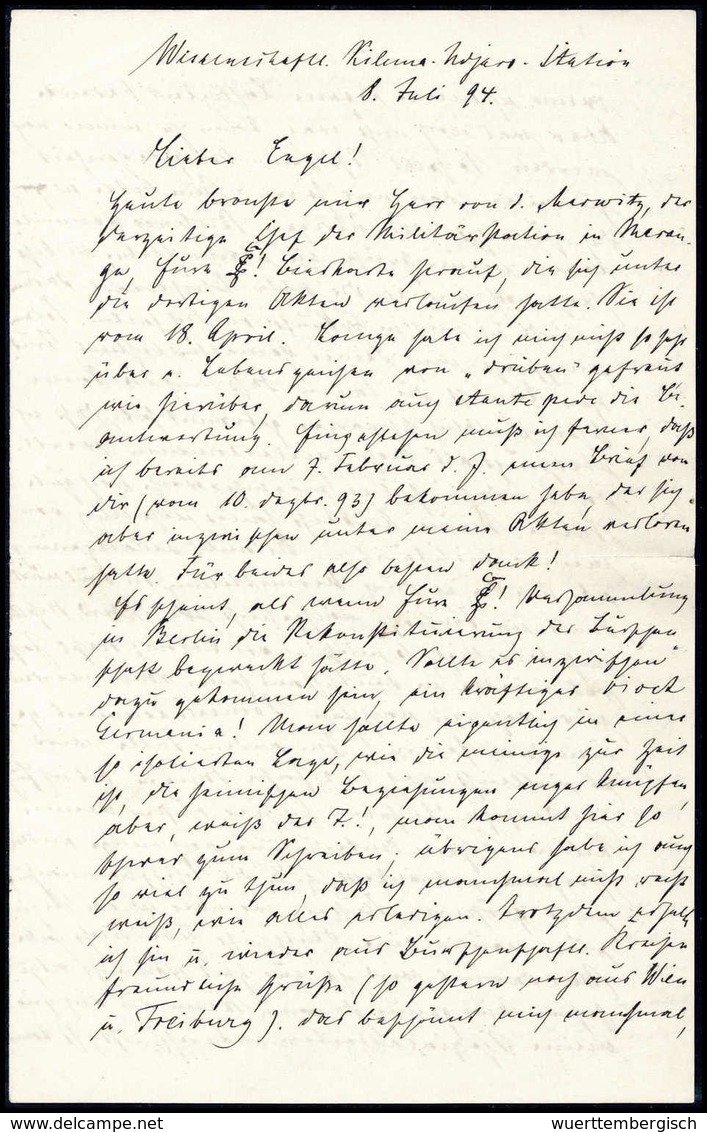 Wissenschaftl. Kilima-Ndjaro-Station
8. Juli 94.
Lieber Engel!
Heute brachte mir Herr von d. Marwitz, der
derzeitige Chef der Militärstation in Maran-
gu, Eure ! Bierkarte herauf, die sich unter
die dortigen Akten verlaufen hatte. Sie ist
vom 18. April. Lange habe ich mich nicht so sehr
über e. Lebenszeichen von „drüben" gefreut
wie hierüber, darum auch stante pede die Be-
antwortung. Eingestehen muß ich ferner, daß
ich bereits am 7. Februar d. J. einen Brief von
dir (vom 10. Dezbr. 93) bekommen habe, der sich
aber inzwischen unter meine Akten verloren
hatte. Für beides also besten Dank!
Es scheint, als wenn Eure ! Versammlung
in Berlin die Rekonstituierung der Burschen-
schaft bezweckt hätte. Sollte es inzwischen
dazu gekommen sein, ein kräftiges vivat
Germania! Man sollte eigentlich in einer
so isolierten Lage, wie die meinige zur Zeit
ist, die heimischen Beziehungen enger knüpfen,
aber, weiß der T.!, man kommt hier so
schwer zum Schreiben; übrigens habe ich auch
so viel zu thun, daß ich manchmal nicht recht
weiß, wie alles erledigen. Trotzdem erhalte
ich hin u. wieder aus Burschenschaftl. Kreisen
freundliche Grüße (so gestern noch aus Wien
u. Freiburg). Das beschämt mich manchmal,
wuerttembergisch